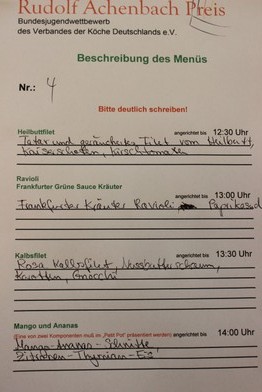 Rudolf Achenbach Preis
Bundesjugendwettbewerb
des Verbandes der Köche Deutschlands e.V.
Beschreibung des Menüs
Nr.: 4
Bitte deutlich schreiben!
Heilbuttfilet angerichtet bis 12:30 Uhr
Tatar und geräuchertes Filet vom Heilbutt,
Kaiserschoten, Kirschtomaten
Ravioli
Frankfurter Grüne Sauce Kräuter angerichtet bis 13:00 Uhr
Frankfurter Kräuter Ravioli
Kalbsfilet angerichtet bis 13:30 Uhr
Rosa Kalbsfilet, Nussbutterschaum,
Karotten, Gnocchi
Mango und Ananas
(Eine von zwei Komponenten muß im „Petit Pot" präsentiert werden) angerichtet bis 14:00 Uhr
Mango-Ananas-Schnitte,
Zitronen-Thymian-Eis